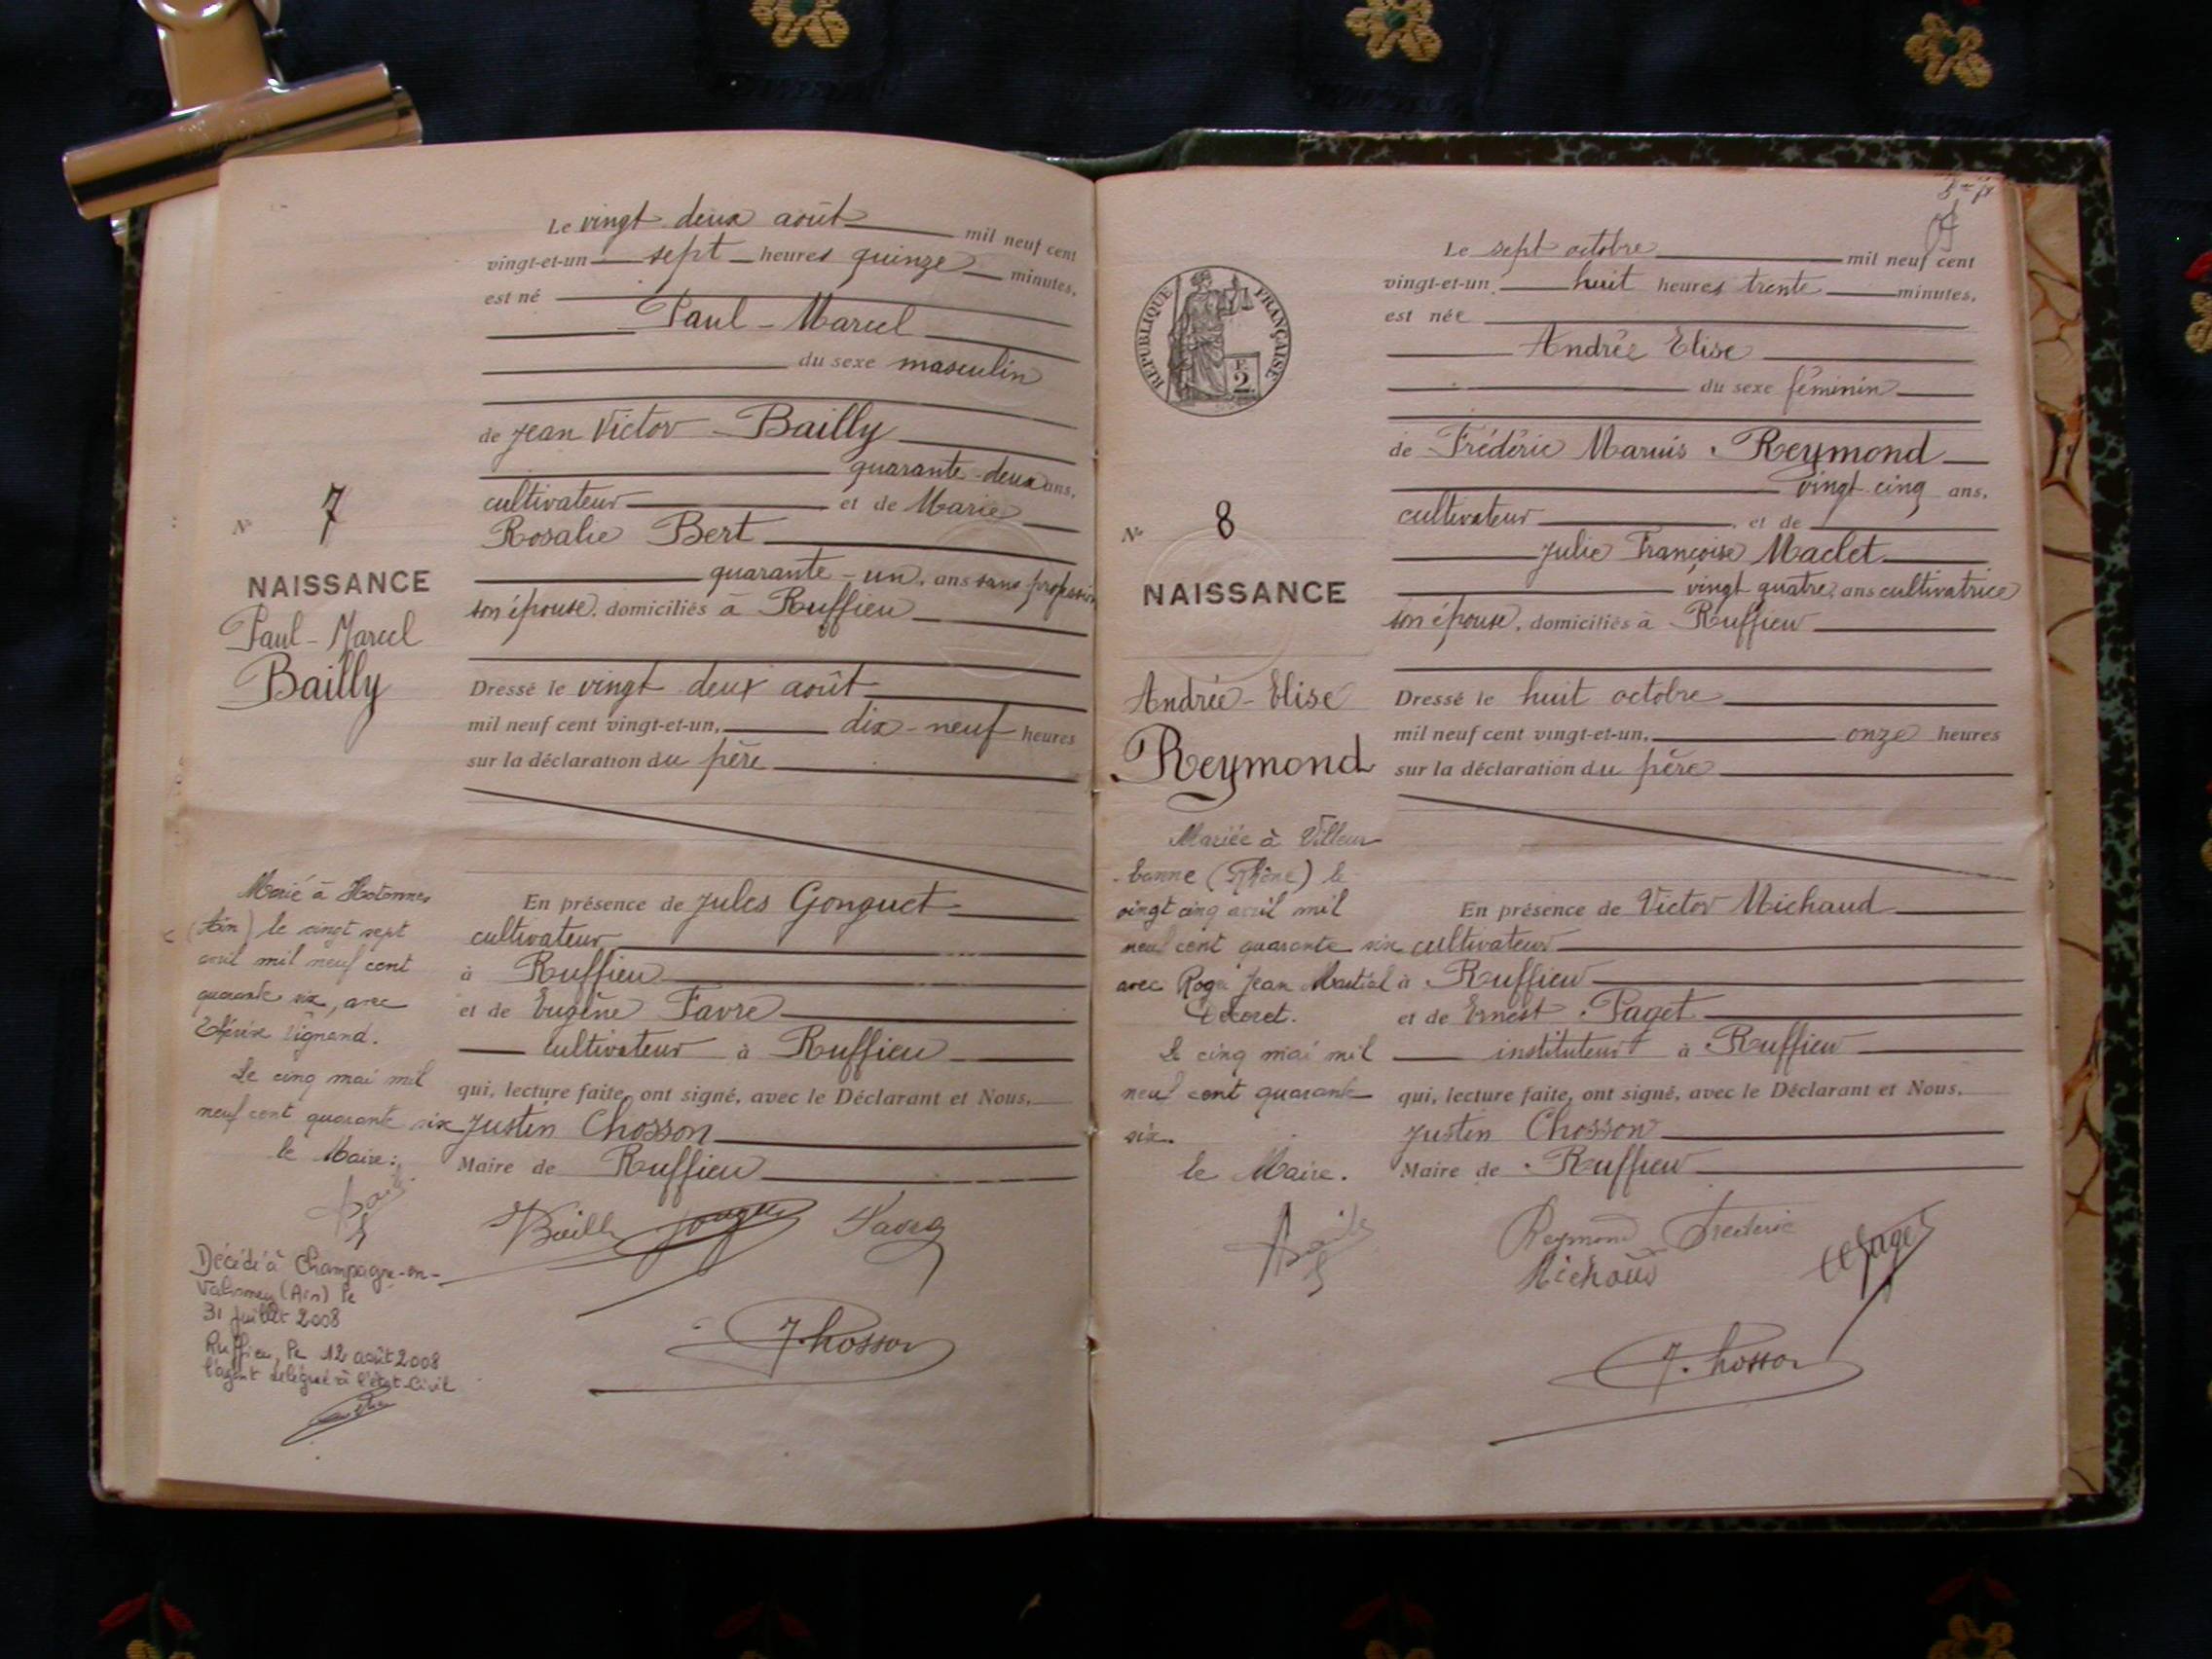 Le vingt deux août mil neuf cent
vingt-et-un sept heures quinze minutes,
est né
Paul-Marcel
du sexe masculin
de Jean Victor Bailly
quarante-deux ans,
cultivateur et de Marie
Rosalie Bert
quarante-un, ans sans profession
son épouse, domiciliés à Ruffieu
Dressé le vingt deux août
mil neuf cent vingt-et-un, dix-neuf heures
sur la déclaration du père
En présence de Jules Gonguet
cultivateur
à Ruffieu
et de Eugène Favre
cultivateur à Ruffieu
qui, lecture faite, ont signé, avec le Déclarant et Nous,
Justin Chosson
Maire de Ruffieu
Bailly
Favre
J. Chosson
N° 7
NAISSANCE
Paul-Marcel
Bailly
Marié à Hotonnes
(Ain) le vingt sept
avril mil neuf cent
quarante six, avec
Vignand.
Le cinq mai mil
neuf cent quarante six
le Maire:
Décédé à Champagne-en-
Valromey (Ain) le
31 Juillet 2008
Ruffieu, le 12 août 2008
l'agent délégué à l'état-Civil
Le sept octobre mil neuf cent
vingt-et-un, huit heures trente minutes,
est née
Andrée Elise
du sexe féminin
de Frédéric Marius Reymond
vingt-cinq ans,
cultivateur, et de
Julie Françoise Maclet
vingt quatre, ans cultivatrice
son épouse, domiciliés à Ruffieu
Dressé le huit octobre
mil neuf cent vingt-et-un, onze heures
sur la déclaration du père
En présence de Victor Michaud
cultivateur
à Ruffieu
et de Ernest Paget
instituteur à Ruffieu
qui, lecture faite, ont signé, avec le Déclarant et Nous,
Justin Chosson
Maire de Ruffieu
Reymond Frederic
Michaud
Paget
J. Chosson
REPUBLIQUE FRANÇAISE
F.
2
N° 8
NAISSANCE
Andrée-Elise
Reymond
Mariée à Villeur-
banne (Rhône) le
vingt cinq avril mil
neuf cent quarante six
avec Roger Jean Martial
Le cinq mai mil
neuf cent quarante
six.
le Maire.